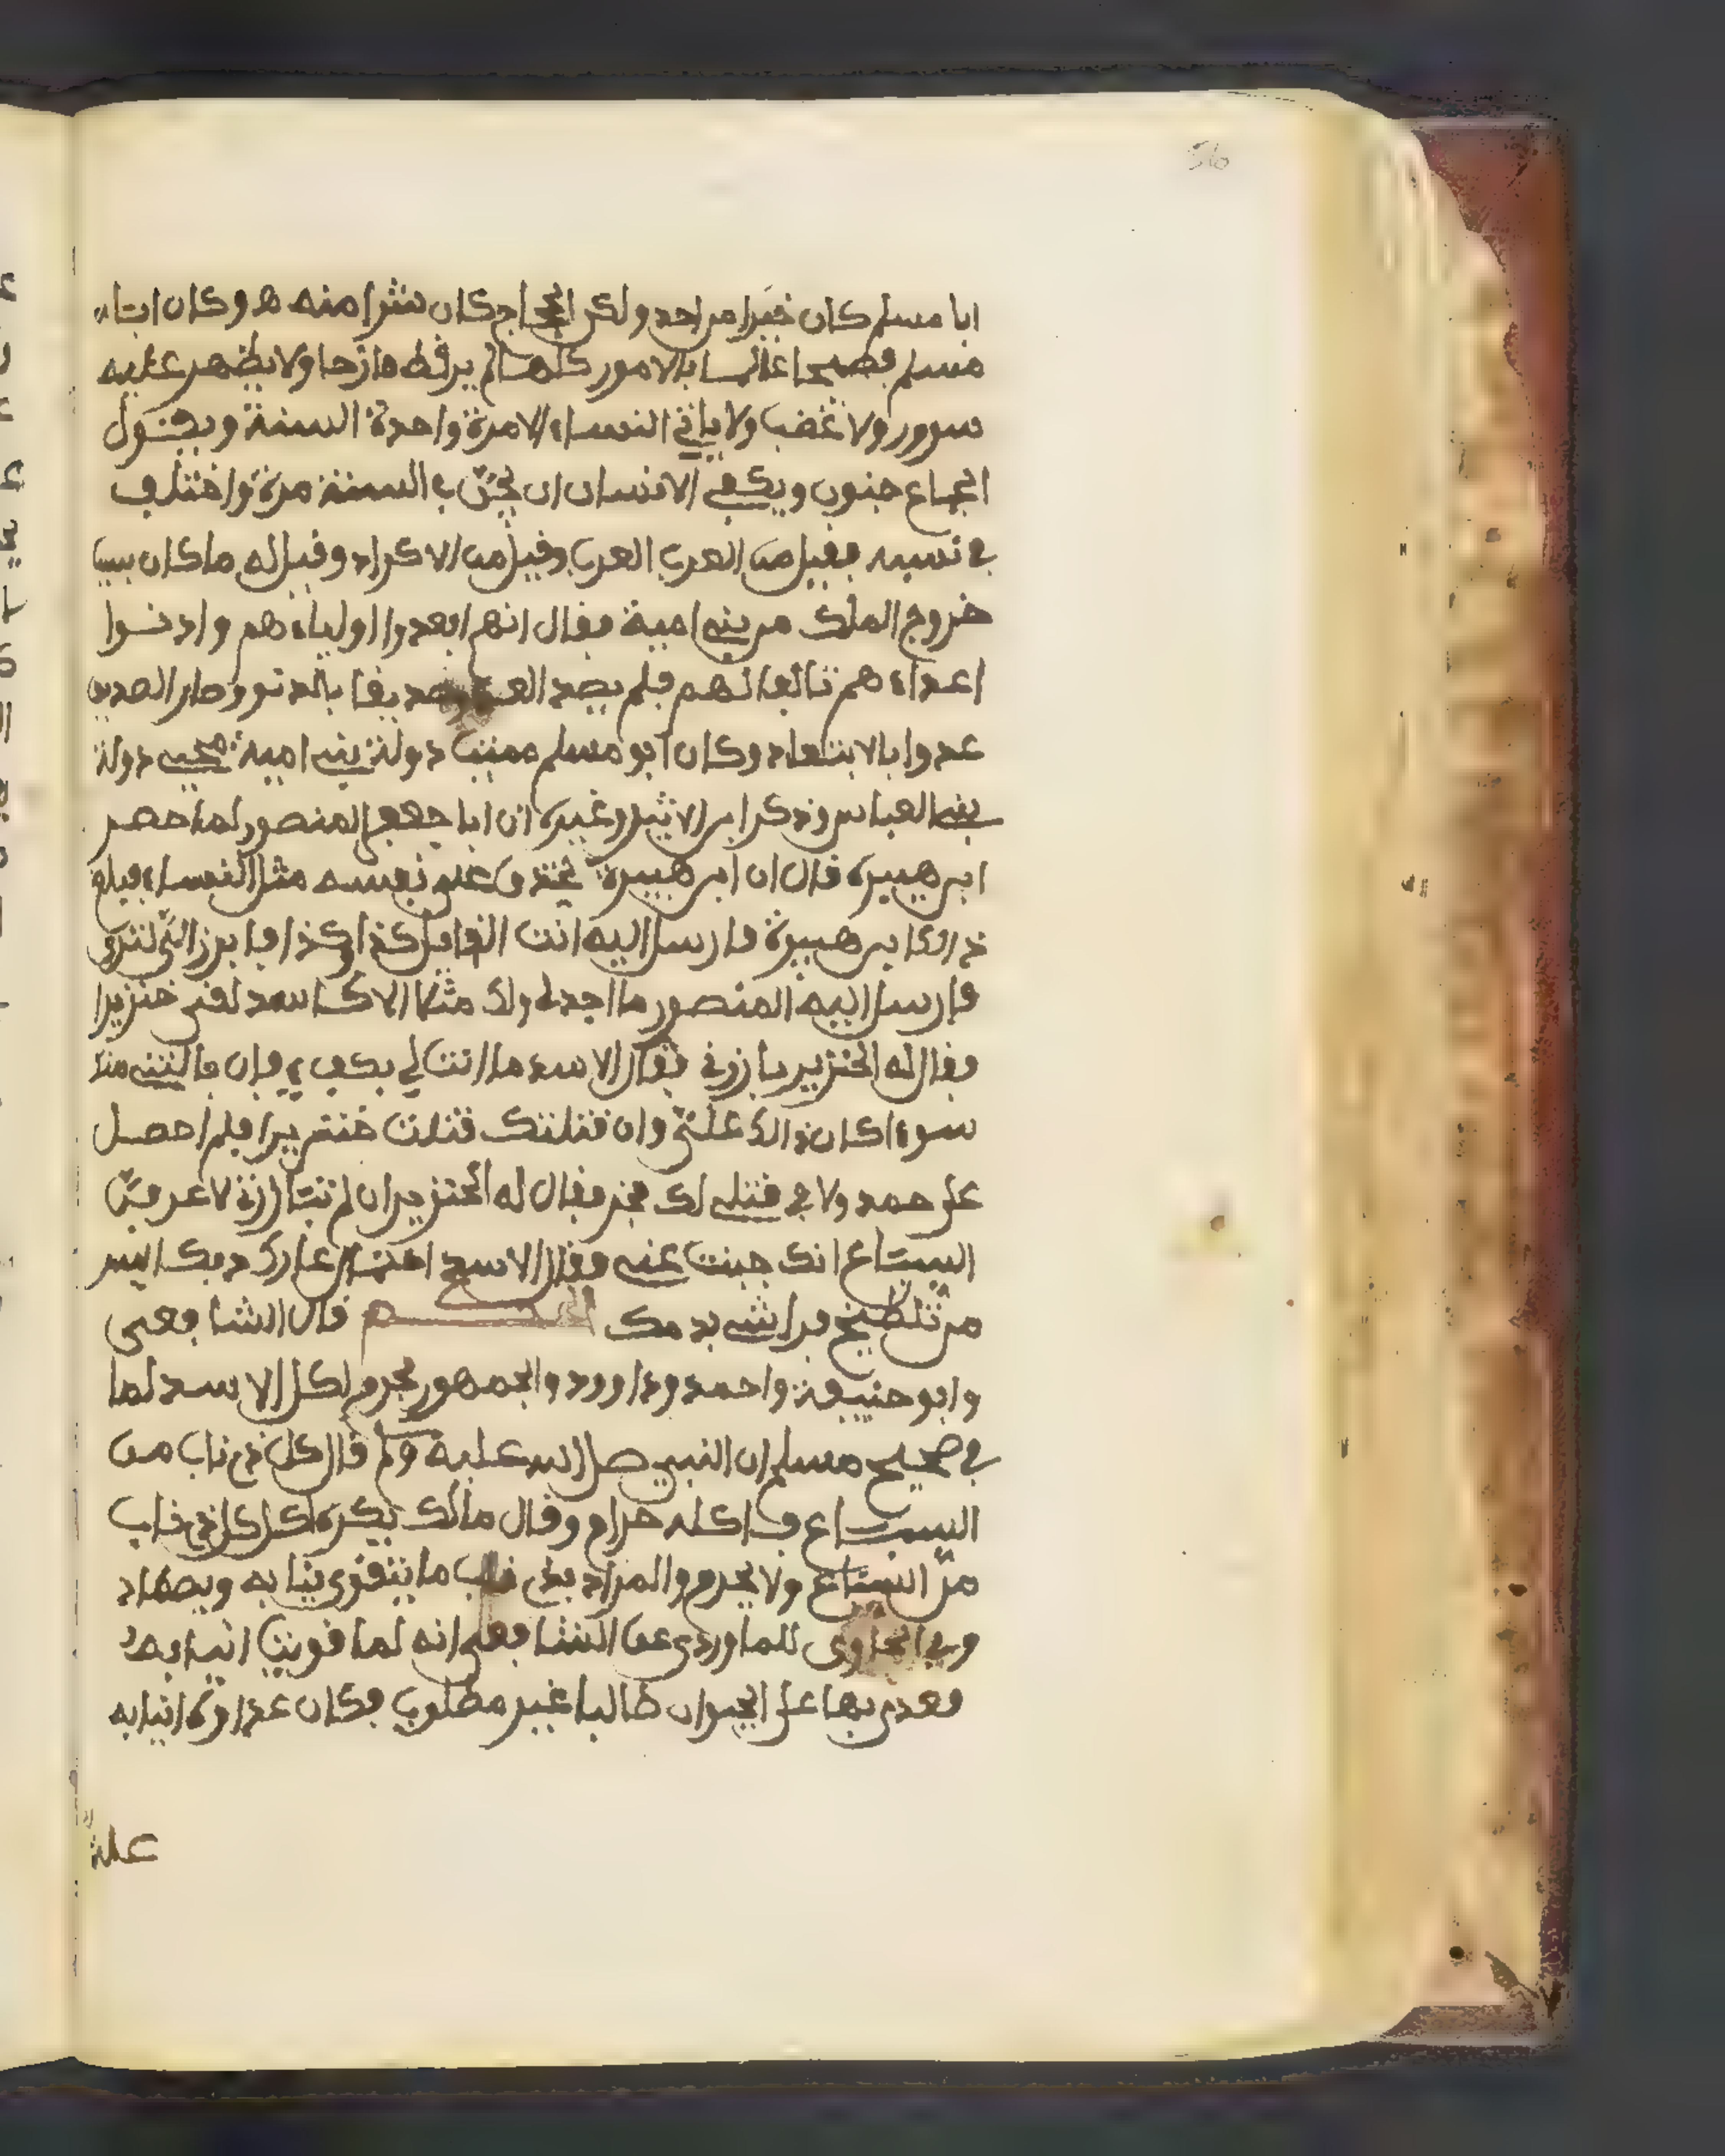 56
ابا مسلم كان خيرا من احد ولكن الحجاج كان شرا منه ه وكان ابا
مسلم فصيحا عالما بالامور كلها لم ير قط مازحا ولا يظهر عليه
سرور ولا غضب ولا ياتي النساء الا مرة واحدة السنة ويقول
الجماع جنون ويكفي الانسان ان يجن في السنة مرة واختلف
في نسبه فقيل من العرب العرب وقيل من الاكراد وقيل له ما كان سبب
خروج الملك من بني امية فقال انهم ابعدوا اولياءهم وادنوا
اعداءهم تالفا لهم فلم يصد العدو صديقا بالدنو وصار الصديق
عدوا بالابتعاد وكان ابو مسلم مميت دولة بني امية محيي دولة
بني العباس وذكر ابن الاثير وغيره ان ابا جعفر المنصور لما حصر
ابن هبيرة قال ان ابن هبيرة يخندق على نفسه مثل النساء فبلغ
ذالك ابن هبيرة فارسل اليه انت القايل كذا وكذا فابرز الي لترى
فارسل اليه المنصور ما اجد لي ولك مثلا الا كاسد لقي خنزيرا
وقال له الخنزير بارزني فقال الاسد ما انت لي بكفي فان نالني منك
سوء كان ذالك علي وان قتلتك قتلت خنزيرا فلم احصل
على حمد ولا في قتلي لك فخر فقال له الخنزير ان لم تبارزني لاعرفن
السباع انك جبنت عني فقال الاسد احتمال عار كذبك ايسر
من تلطيخ براثني بدمك الحكم قال الشافعي
وابو حنيفة واحمد وداوود والجمهور يحرم اكل الاسد لما
في صحيح مسلم ان النبي صلى الله عليه وسلم قال كل ذي ناب من
السباع فاكله حرام وقال مالك يكره اكل كل ذي ناب
من السباع ولا يحرم والمراد بذي ناب ما يتقوى بنابه ويصطاد
وفي الحاوي للماوردي عن الشافعي انه لما قويت انيابه
فعدى بها على الحيوان طالبا غير مطلوب فكان عداوة انيابه
علة